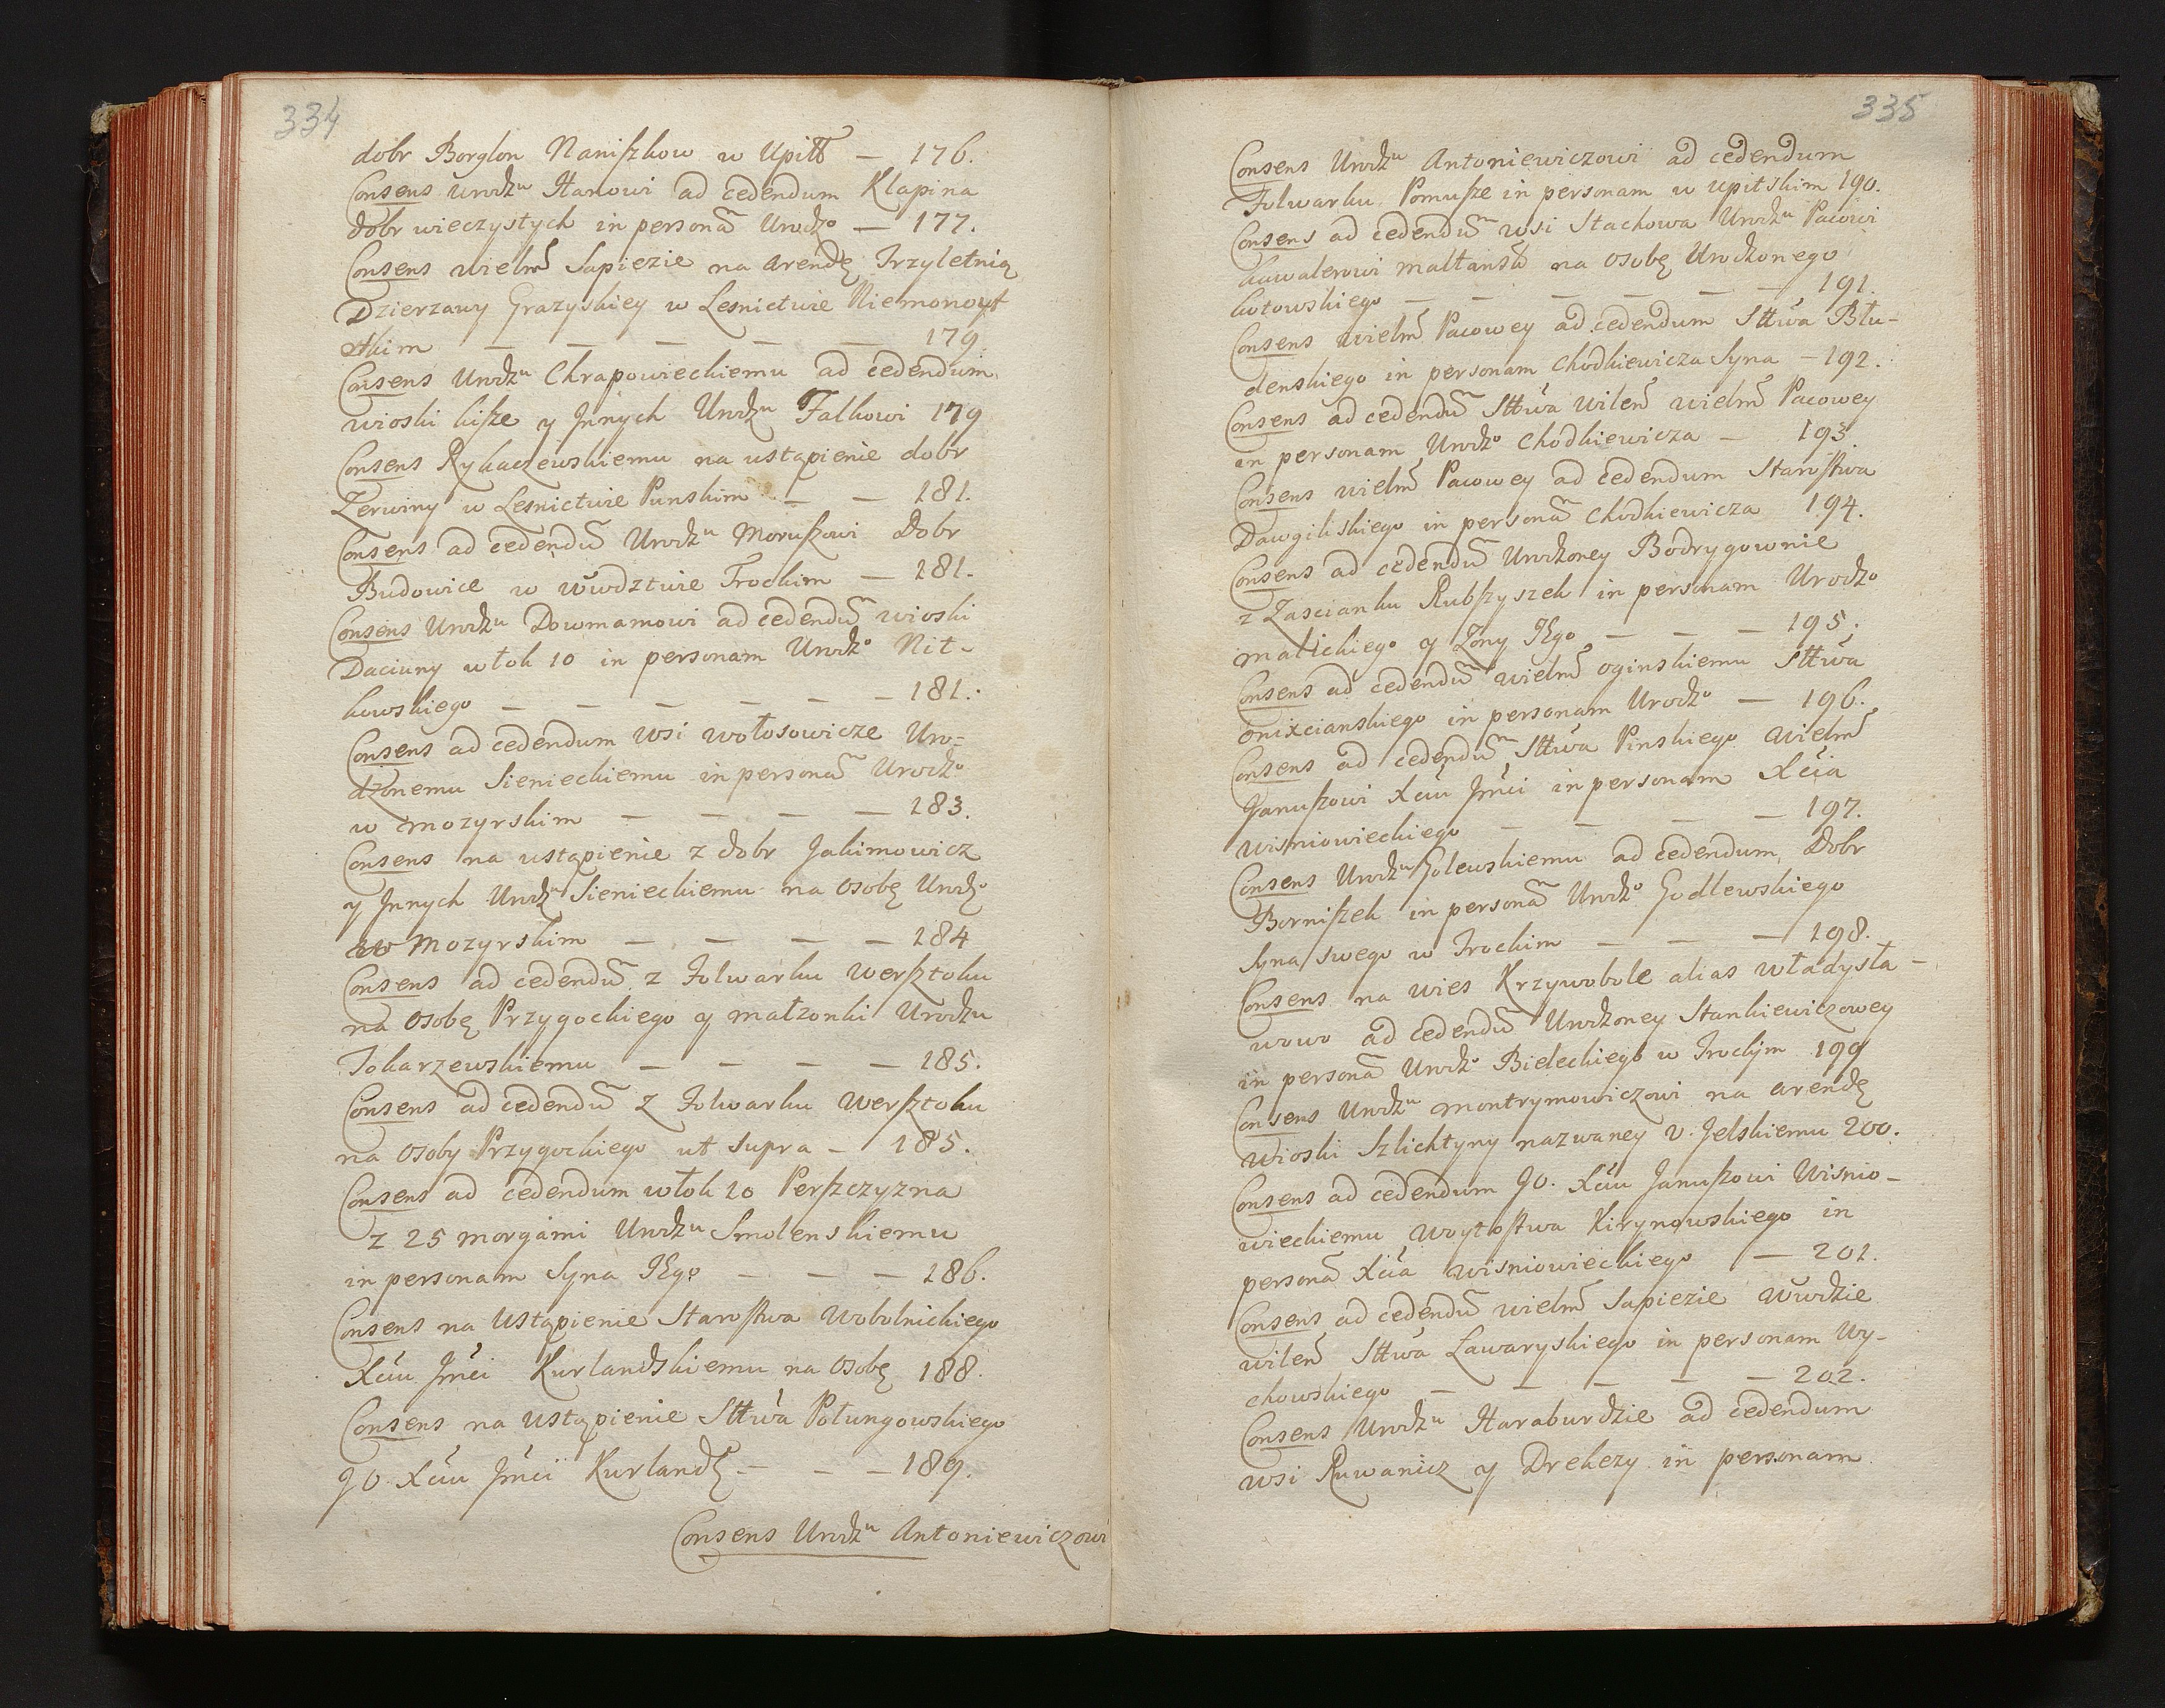 334
dobr Borglon Naniszkow w Upitt — 176.
Consens Urodzu Hanowi ad cedendum Klapina
dobr wieczystych in personam Urodzo — 177.
Consens wielm Sapiezie na Arendę Trzyletnią
Dzierzawy Grazyskiey w Lesnictwie Niemonoyt
skim — — — — — 179.
Consens Urodzu Chrapowieckiemu ad cedendum
wioski kisze y Jnnych Urodzu Falkowi 179
Consens Rykaczewskiemu na ustąpienie dobr
Zerwiny w Lesnictwie Punskim — — 181.
Consens ad cedendum Urodzu Moruszowi Dobr
Budowice w wwdztwie Trockim — 181.
Consens Urodzu Dowmamowi ad cedendum wioski
Daciuny włok 10 in personam Urodzo Nit-
kowskiego — — — — — 181.
Consens ad cedendum wsi wołosowicze Uro-
dzonemu Sienieckiemu in personam Urodzo
w mozyrskim — — — — 183.
Consens na ustąpienie z dobr Jakimowicz
y Jnnych Urodzu Sienieckiemu na osobę Urodzo
w Mozyrskim — — — — 184
Consens ad cedendum z Folwarku Wersztoku
na Osobę Przygockiego y małzonki Urodzu
Tokarzewskiemu — — — — 185.
Consens ad cedendum z Folwarku Wersztoku
na Osoby Przygockiego ut supra — 185.
Consens ad cedendum włok 10 Perszczyzna
z 25 morgami Urodzu Smolenskiemu
in personam Syna Jego — — — 186.
Consens na Ustąpienie Starostwa Wobolnickiego
Xciu Jmci Kurlandskiemu na Osobę 188.
Consens na ustąpienie Sttwa Połungowskiego
JO. Xciu Jmci Kurlandz — — — 189.
Consens Urodzu Antoniewiczowi
335
Consens Urodzu Antoniewiczowi ad cedendum
Folwarku Pomusze in personam w upitskim 190.
Consens ad cedendum wsi Stachowa Urodzu Pacowi
kawalerowi maltansk na osobę Urodzonego
kotowskiego — — — — — — 191.
Consens wielm Pacowey ad cedendum Sttwa Błu-
denskiego in personam Chodkiewicza Syna — 192.
Consens ad cedendum Sttwa Wilen wielm Pacowey
in personam Urodzo Chodkiewicza — 193.
Consens wielm Pacowey ad cedendum Starostwa
Dawgiliskiego in personam Chodkiewicza 194.
Consens ad cedendum Urodzoney Bodrygownie
z Zascianku Rubszyszek in personam Urodzo
malickiego y Zony Jego — — — 195.
Consens ad cedendum wielm oginskiemu Sttwa
onixcianskiego in personam Urodzo — 196.
Consens ad cedendum Sttwa Pinskiego wielm
Januszowi Xciu Jmci in personam Xcia
Wisniowieckiego — — — — 197.
Consens Urodzu Golewskiemu ad cedendum Dobr
Borniszek in personam Urodzo Godlewskiego
Syna swego w Trockim — — — 198.
Consens na wies Krzywobole alias władysła-
wowo ad cedendum Urodzoney Stankiewiczowey
in personam Urodzo Bieleckiego w Trockim 199
Consens Urodzu montrymowiczowi na arendę
wioski Szlichtyny nazwaney U. Jelskiemu 200.
Consens ad cedendum JO. Xciu Januszowi Wisnio-
wieckiemu woytostwa Kirynowskiego in
personam Xcia wisniowieckiego — 201.
Consens ad cedendum wielm Sapiezie wwdzie
wilen Sttwa Ławaryskiego in personam Wy-
chowskiego — — — — — 202.
Consens Urodzu Haraburdzie ad cedendum
wsi Ruwanicz y Drehezy in personam